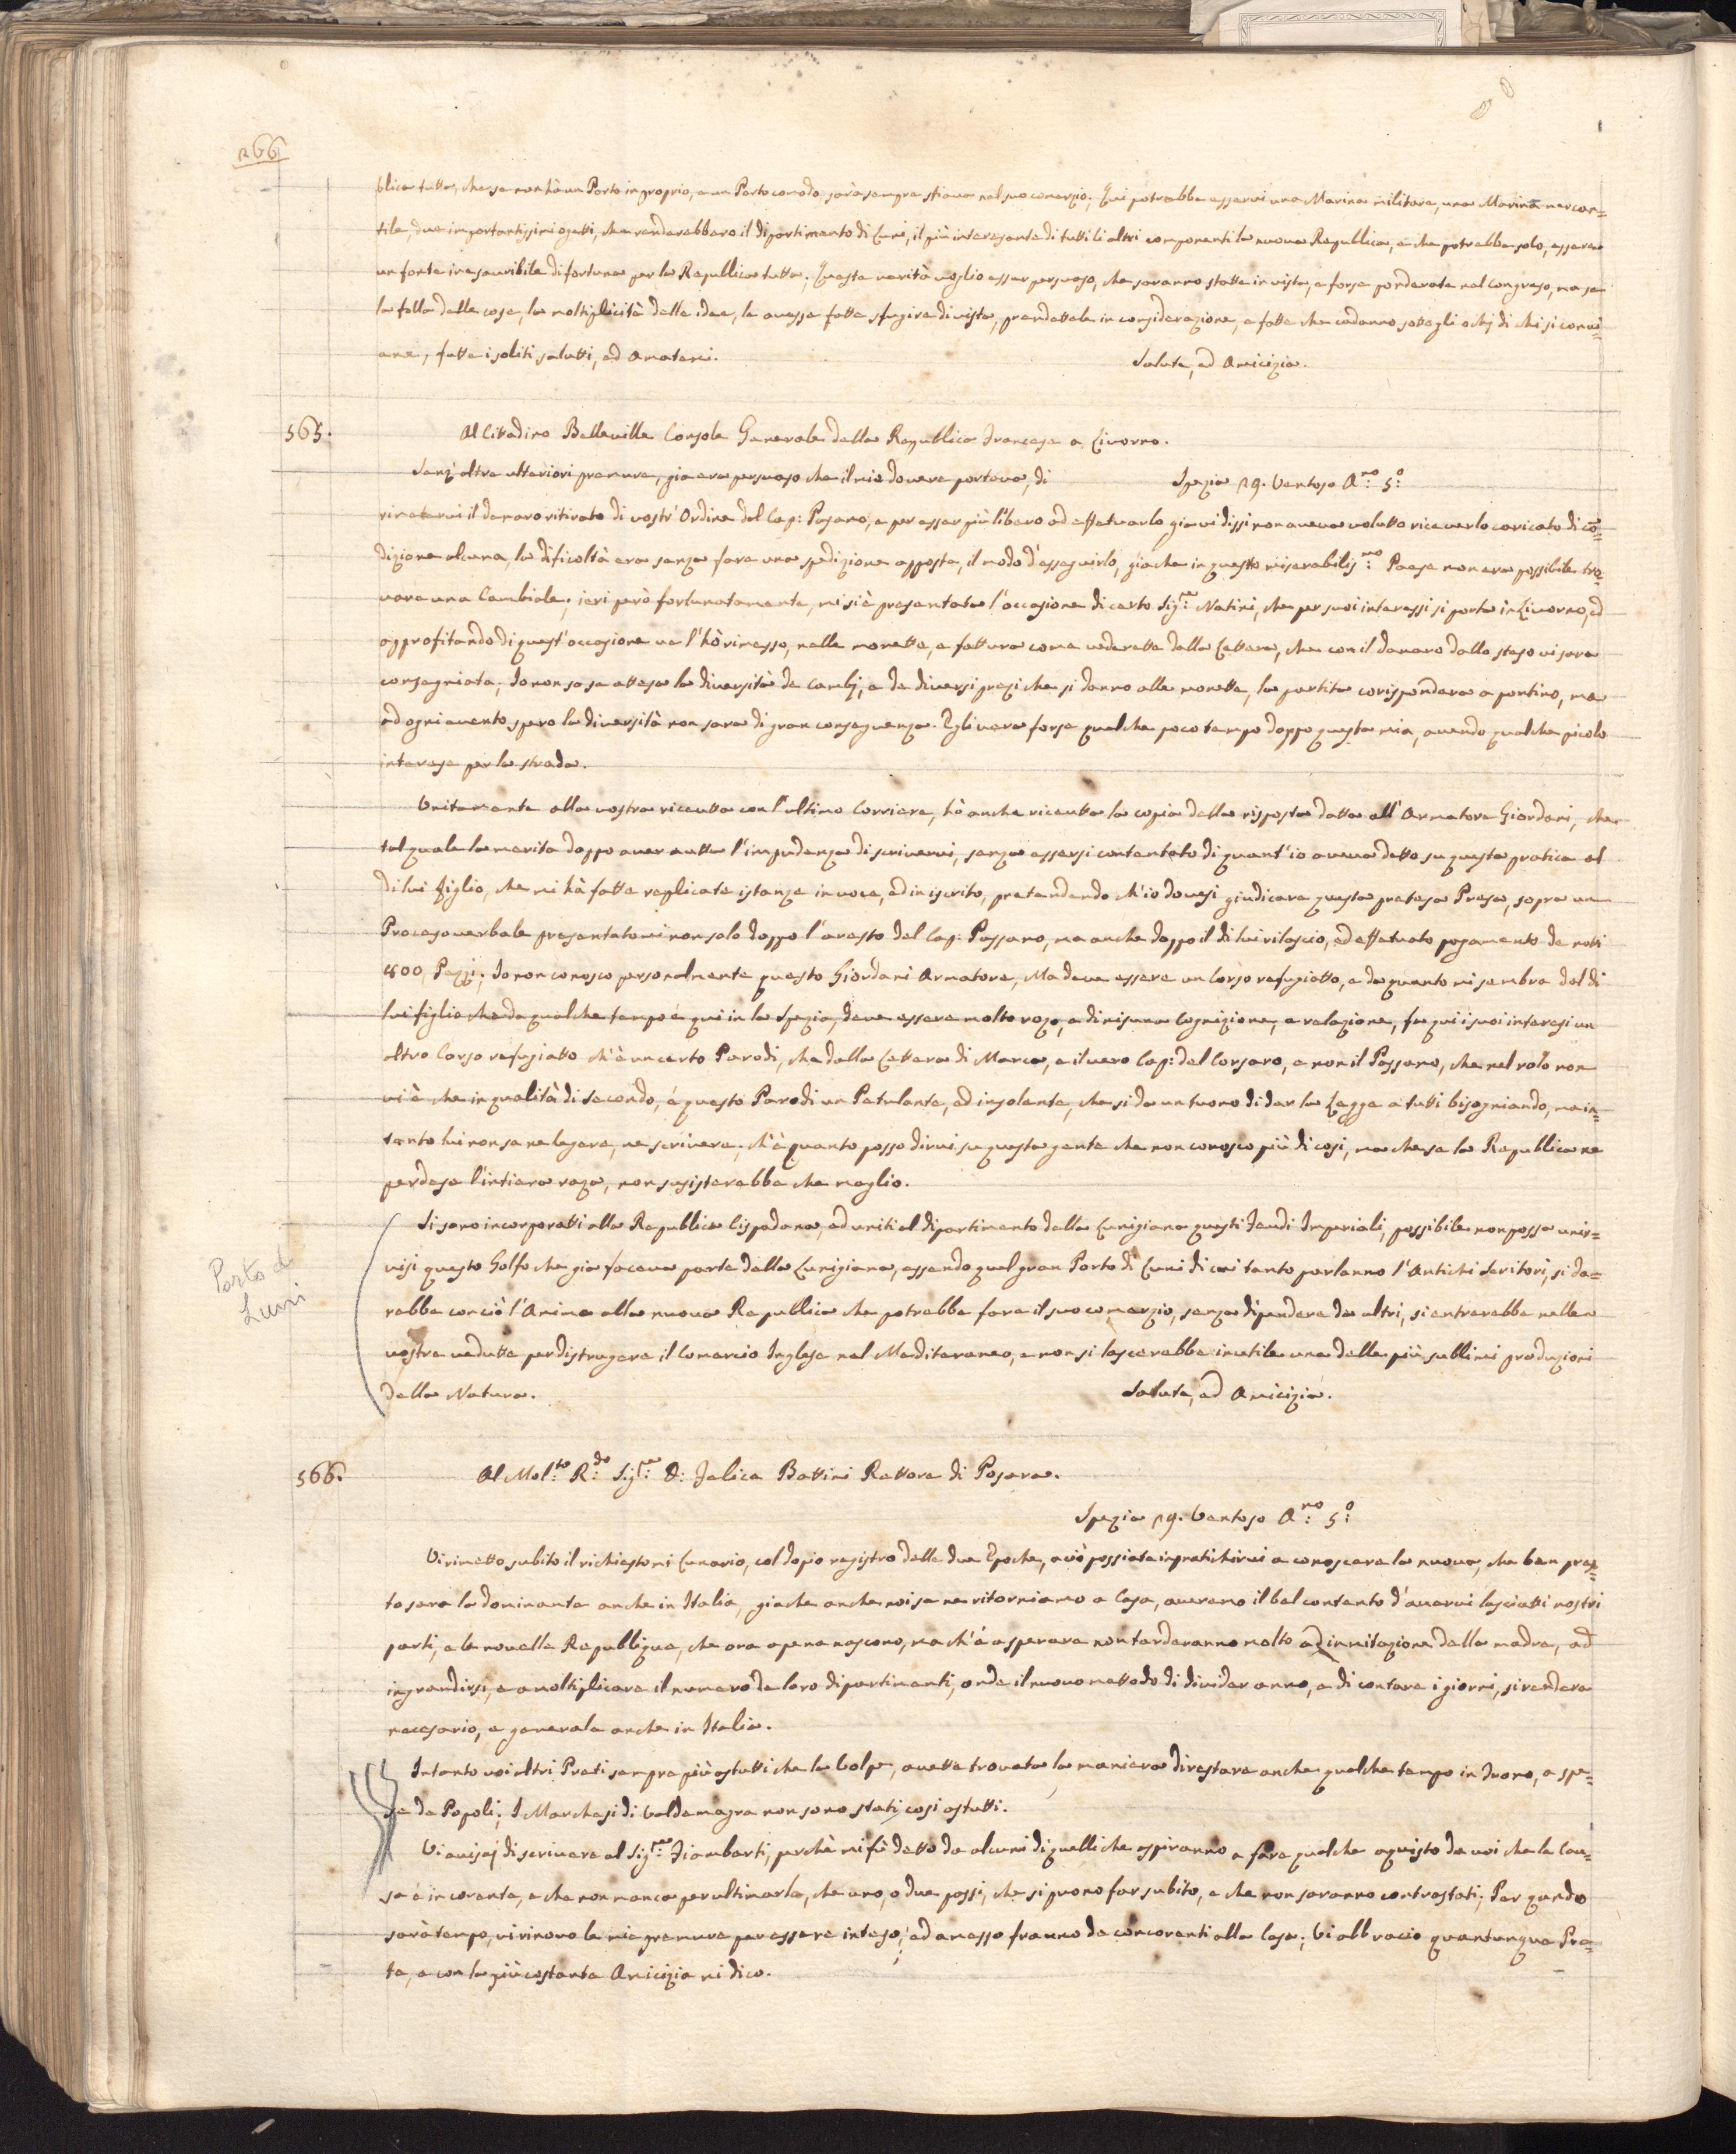 266
blica tutta, che se non hà un Porto in proprio, e un Porto comodo, sarà sempre schiava nel suo comerzio. Qui potrebbe esservi una Marina militare, una Marina mercan=
tile, due importantissimi ogetti, che renderebbero il dipartimento di Luni, il più interesante di tutti li altri componenti la nuova Republica, e che potrebbe solo, essere
un fonte inesauribile di fortuna per la Republica tutta. Queste verità voglio esser persuaso, che saranno state in vista, e forse ponderate nel congreso, ma se
la folla delle cose, la moltiplicità delle idee, le avesse fatte sfugire di vista, prendettele in considerazione, e fatte che cadanno sotto gli ochj di chi si convi=
ene, fatte i soliti salutti, ed amatemi.
Salute, ed Amicizia.
565.
Al Citadino Belleville Console Generale della Republica Francese a Livorno.
Senz'altre ulteriori premure, gia era persuaso che il mio dovere portava, di
Spezia 19. Ventoso A.no 5.o
rimetervi il denaro ritirato di vostr'Ordine dal Cap: Pasano, e per esser più libero ad effetuarlo gia vi dissi non aveva volutto riceverlo caricato di co=
dizione alcuna, la dificoltà era senza fare una spedizione apposta, il modo d'esseguirlo, giache in questo miserabilis.mo Paese non era possibile tro=
vare una Cambiale; ieri però fortunatamente, mi si è presentata l'occasione di certo Sig.re Natini, che per suoi interessi si porta in Livorno, ed
approfitando di quest'occasione ve l'hò rimesso, nelle monette, e fattura come vederette dalla Lettera, che con il danaro dallo steso vi sara
consegniata. Io non so se attesa la diversità de cambj, e de diversi prezi che si danno alle monette, la partita corispondera a pontino, ma
ad ogni avento spero la diversità non sara di gran conseguenza. Egli vera forse qualche poco tempo doppo questa mia, avendo qualche picolo
interese per la strada.
Unitamente alla vostra riceutta con l'ultimo Corriere, hò anche riceutta la copia della risposta datta all'Armatore Giordani, che
tal quale la merita doppo aver autta l'impudenza di scrivervi, senza essersi contentato di quant'io aveva detto su questa pratica al
di lui figlio, che mi hà fatte replicate istanze in voce, ed in iscrito, pretendendo ch'io dovesi giudicare questa pretesa Presa, sopra un
Proceso verbale presentatomi non solo doppo l'aresto del Cap: Passano, ma anche doppo il di lui rilascio, ed effetuato pagamento de noti
1800 Pezzi. Io non conosco personalmente questo Giordani Armatore, Ma deve essere un Corso refugiatto, e da quanto mi sembra dal di
lui figlio che da qualche tempo é qui in la Spezia, deve essere molto rozo, e di nisuna Cognizione, e relazione, fa qui i suoi interesi un
altro Corso refugiatto ch'è un certo Parodi, che dalla Lettera di Marca, e il vero Cap: del Corsaro, e non il Passano, che nel rolo non
vi è che in qualità di secondo, é questo Parodi un Petulante, ed insolente, che si da un tuono di dar la Legge a tutti bisogniando, ma in=
tanto lui non sa ne legere, ne scrivere, ch'è quanto posso dirvi su questa gente che non conosco più di cosi, ma che se la Republica ne
perdese l'intiera raza, non susisterebbe che meglio.
Si sono incorporatti alla Republica Cispadana, ed uniti al dipartimento della Lunigiana questi Feudi Imperiali, possibile non possa unir=
visi questo Golfo che gia faceva parte della Lunigiana, essendo quel gran Porto di Luni di cui tanto parlanno l'Antichi Scritori, si da=
rebbe con ciò l'Anima alla nuova Republica che potrebbe fare il suo comerzio, senza dipendere da altri, si entrerebbe nelle
vostre vedutte per distrugere il Comercio Inglese nel Mediteraneo, e non si lascerebbe inutile una delle più sublimi produzioni
della Natura.
Salute, ed Amicizia.
Porto di
Luni
566.
Al Mol.to R.do Sig.re D: Felice Battini Rettore di Posara.
Spezia 19. Ventoso A.no 5.o
Vi rimetto subito il richiestomi Lunario, col dopio registro delle due Epoche, aciò possiate inpratichirvi a conoscere la nuova, che ben pres=
to sara la dominante anche in Italia, giache anche noi se ne ritorniamo a Casa, averemo il bel contento d'avervi lasciatti nostri
parti, e le novelle Republique, che ora apena nascono, ma ch'é a sperare non tarderanno molto ad immitazione della madre, ad
ingrandirsi, e a moltiplicare il numero de loro dipartimenti, onde il nuovo mettodo di divider anno, e di contare i giorni, si rendera
necesario, e generale anche in Italia.
Intanto voi altri Preti sempre più astutti che la Volpe, avette trovata la maniera di restare anche qualche tempo in Trono, a spe=
se de Popoli. I Marchesi di Valdemagra non sono stati cosi astutti.
Vi avisaj di scrivere al Sig.re Fiamberti, perchè mi fù detto da alcuni di quelli che aspiranno a fare qualche aquisto da voi che la Cau=
sa é in corente, e che non manca per ultimarla, che uno, o due passi, che si puono far subito, e che non saranno contrastati. Per quando
sarà tempo, vi rinovo le mie premure per essere inteso, ed amesso fra uno de concorenti alla Casa. Vi abbracio quantunque Pre=
te, e con la più costante Amicizia mi dico.